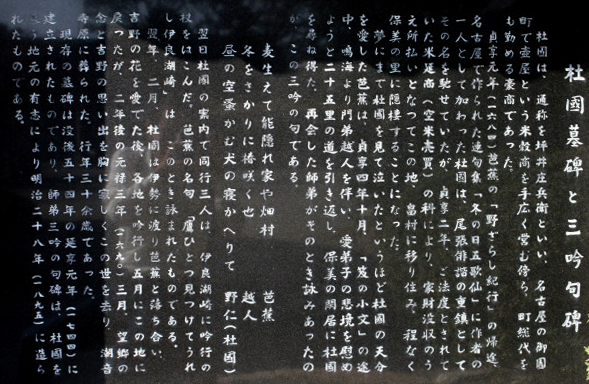 杜國墓碑と三吟句碑
杜國は、通称を坪井庄兵衛といい、名古屋の御園
町で壺屋という米穀商を手広く営む傍ら、町総代を
も勤める豪商であった。
貞享元年(一六八四)芭蕉の「野ざらし紀行」の帰途、
名古屋で作られた連句集「冬の日五歌仙」に作者の
一人として加わった杜國は、尾張俳諧の重鎮として
その名を馳せていたが、貞享二年、ご法度とされて
いた米延商(空米売買)の科により、家財没収のう
え所払いとなってこの地、畠村に移り住み、程なく
保美の里に隠棲することになった。
夢にまで杜國を見て泣いたというほど杜國の天分
を愛した芭蕉は、貞享四年十月、「笈の小文」の途
中、鳴海より門弟越人を伴い、愛弟子の悲境を慰め
ようと二十五里の道を引き返し、保美の閑居に杜國
を尋ね得た。再会した師弟がそのとき詠みあったの
がこの三吟の句である。
麦生えて能隠れ家や畑村 芭蕉
冬をさかりに椿咲く也 越人
昼の空蚤かむ犬の寝かへりて 野仁(杜國)
翌日杜國の案内で同行三人は、伊良湖崎に吟行の
杖をはこんだ。芭蕉の名句「鷹ひとつ見つけてうれ
し伊良湖崎」は、このとき詠まれたものである。
翌年二月、杜國は伊勢に渡り芭蕉と落ち合い、
吉野の花を愛でた後、各地を吟行し五月にこの地に
戻ったが、二年後の元禄三年(一六九〇)三月、望郷の
念と吉野の思い出を胸に寂しくこの世を去り、潮音
寺原に葬られた。行年三十余歳であった。
現存の墓碑は没後五十四年の延享元年(一七四四)に
建立されたものであり、師弟三吟の句碑は、杜國を
う地元の有志により明治二十八年(一八九五)に造ら
れたものである。